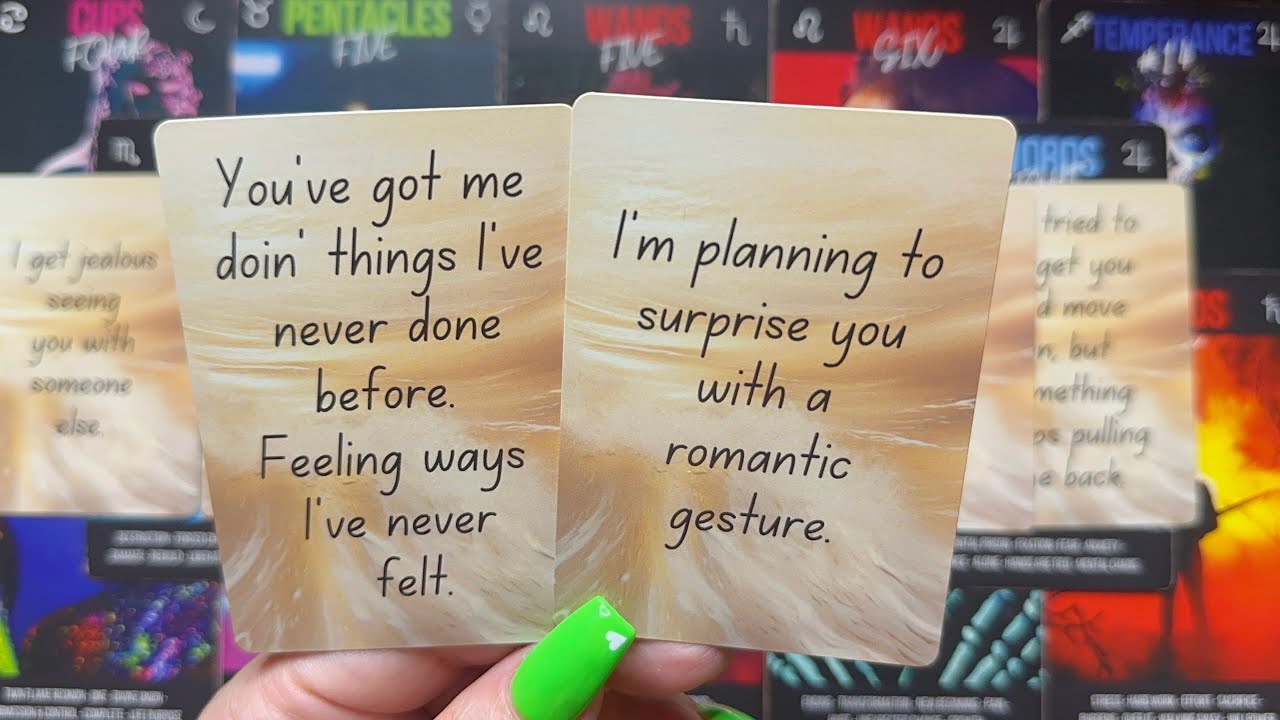 CUPS
FOUR
PENTACLES
FIVE
WANDS
FIVE
WANDS
SIX
TEMPERANCE
#14
You've got me
doin' things I've
never done
before.
Feeling ways
I've never
felt.
I'm planning to
surprise you
with a
romantic
gesture.
I get jealous
seeing
you with
someone
else.
tried to
get you
move
but
pulling
back.
STRESS • HARD WORK • EFFORT • SACRIFICE •